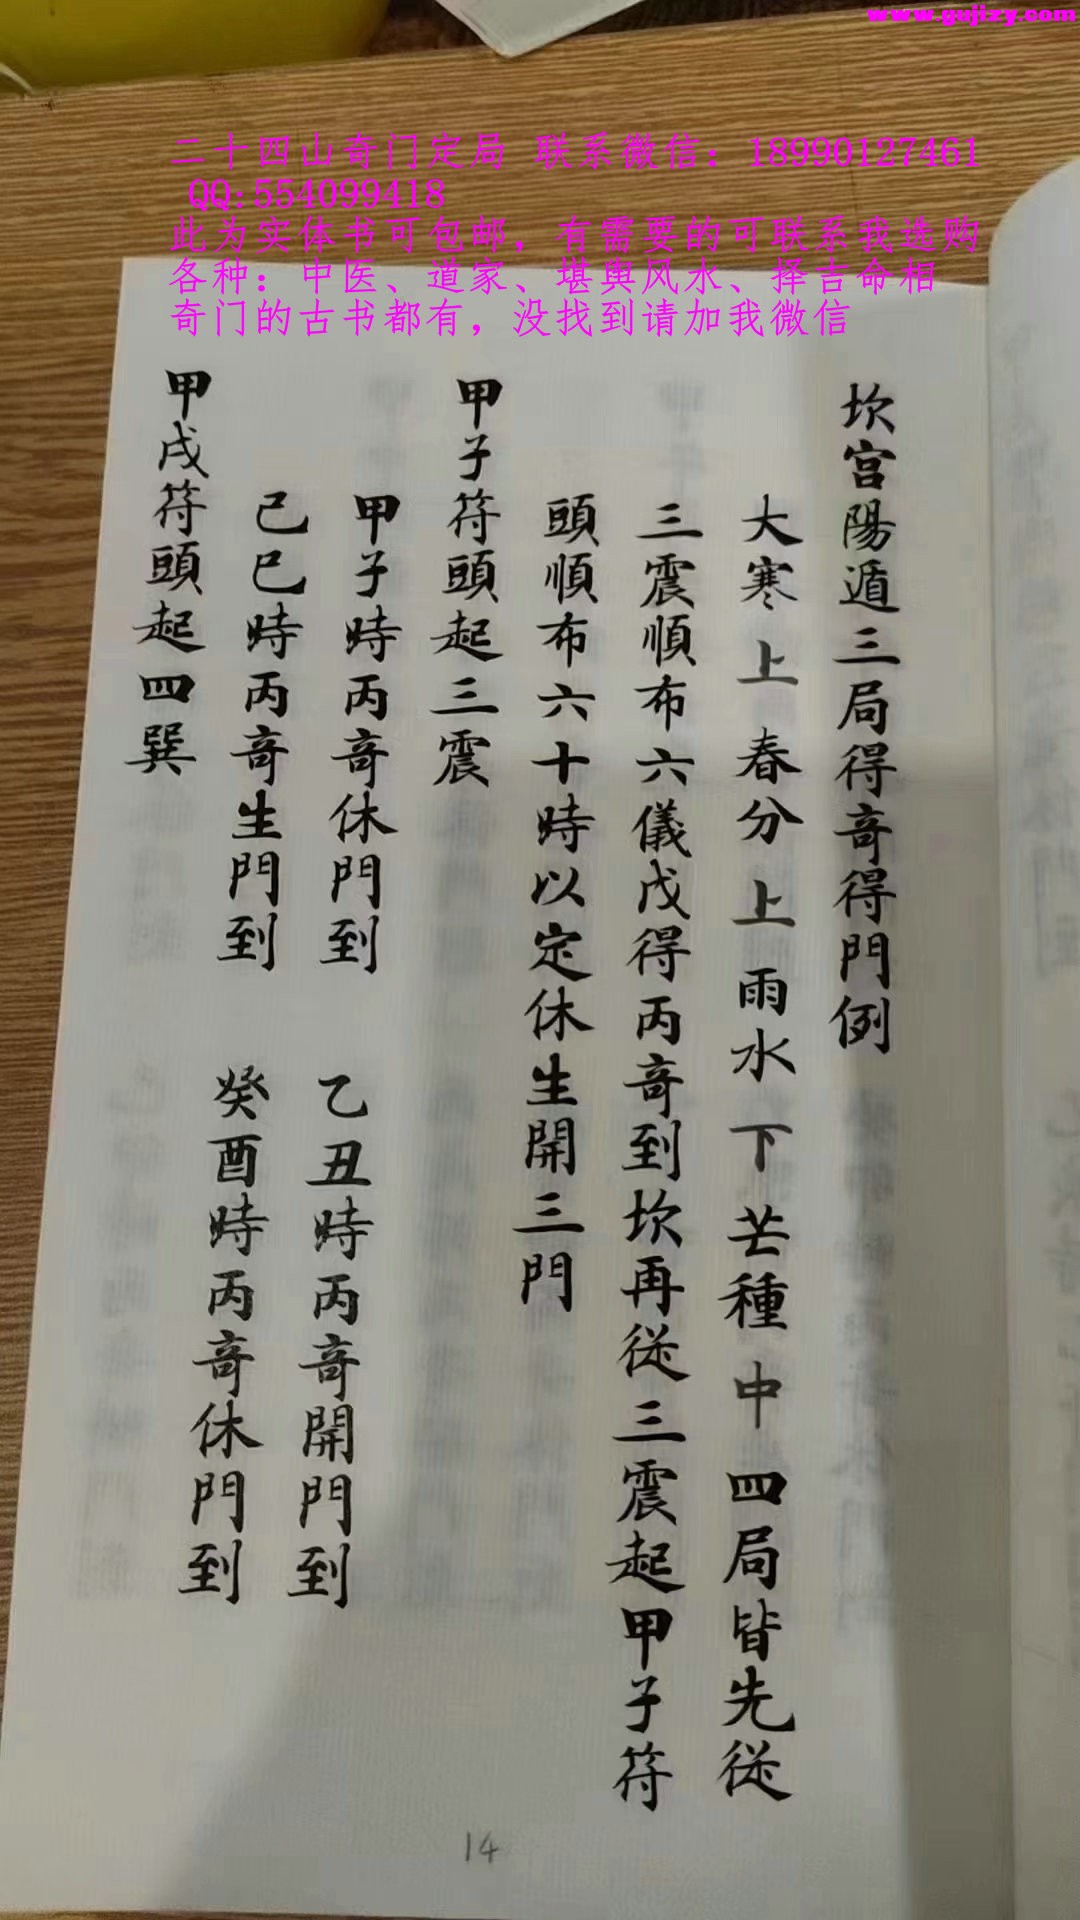 www.gujizy.com
二十四山奇门定局 联系微信：18990127461
QQ:554099418
此为实体书可包邮，有需要的可联系我选购
各种：中医、道家、堪舆风水、择吉命相
奇门的古书都有，没找到请加我微信
坎宫陽遁三局得奇得門例
大寒上春分上雨水下芒種中四局皆先従
三震順布六儀戊得丙奇到坎再従三震起甲子符
頭順布六十時以定休生開三門
甲子符頭起三震
甲子時丙奇休門到 乙丑時丙奇開門到
己巳時丙奇生門到 癸酉時丙奇休門到
甲戌符頭起四巽
14